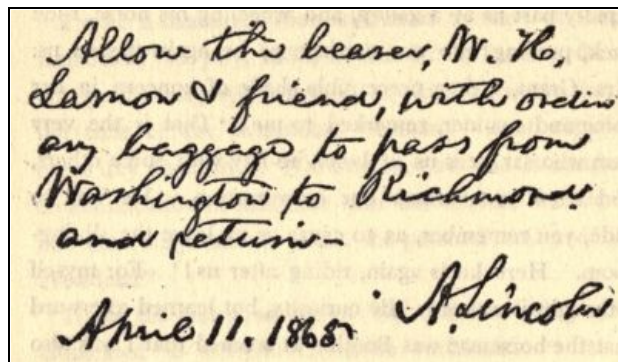 Allow the bearer, W. H,
Lamon & friend, with ordin
ary baggage to pass from
Washington to Richmond
and return—
A. Lincoln
April 11. 1865